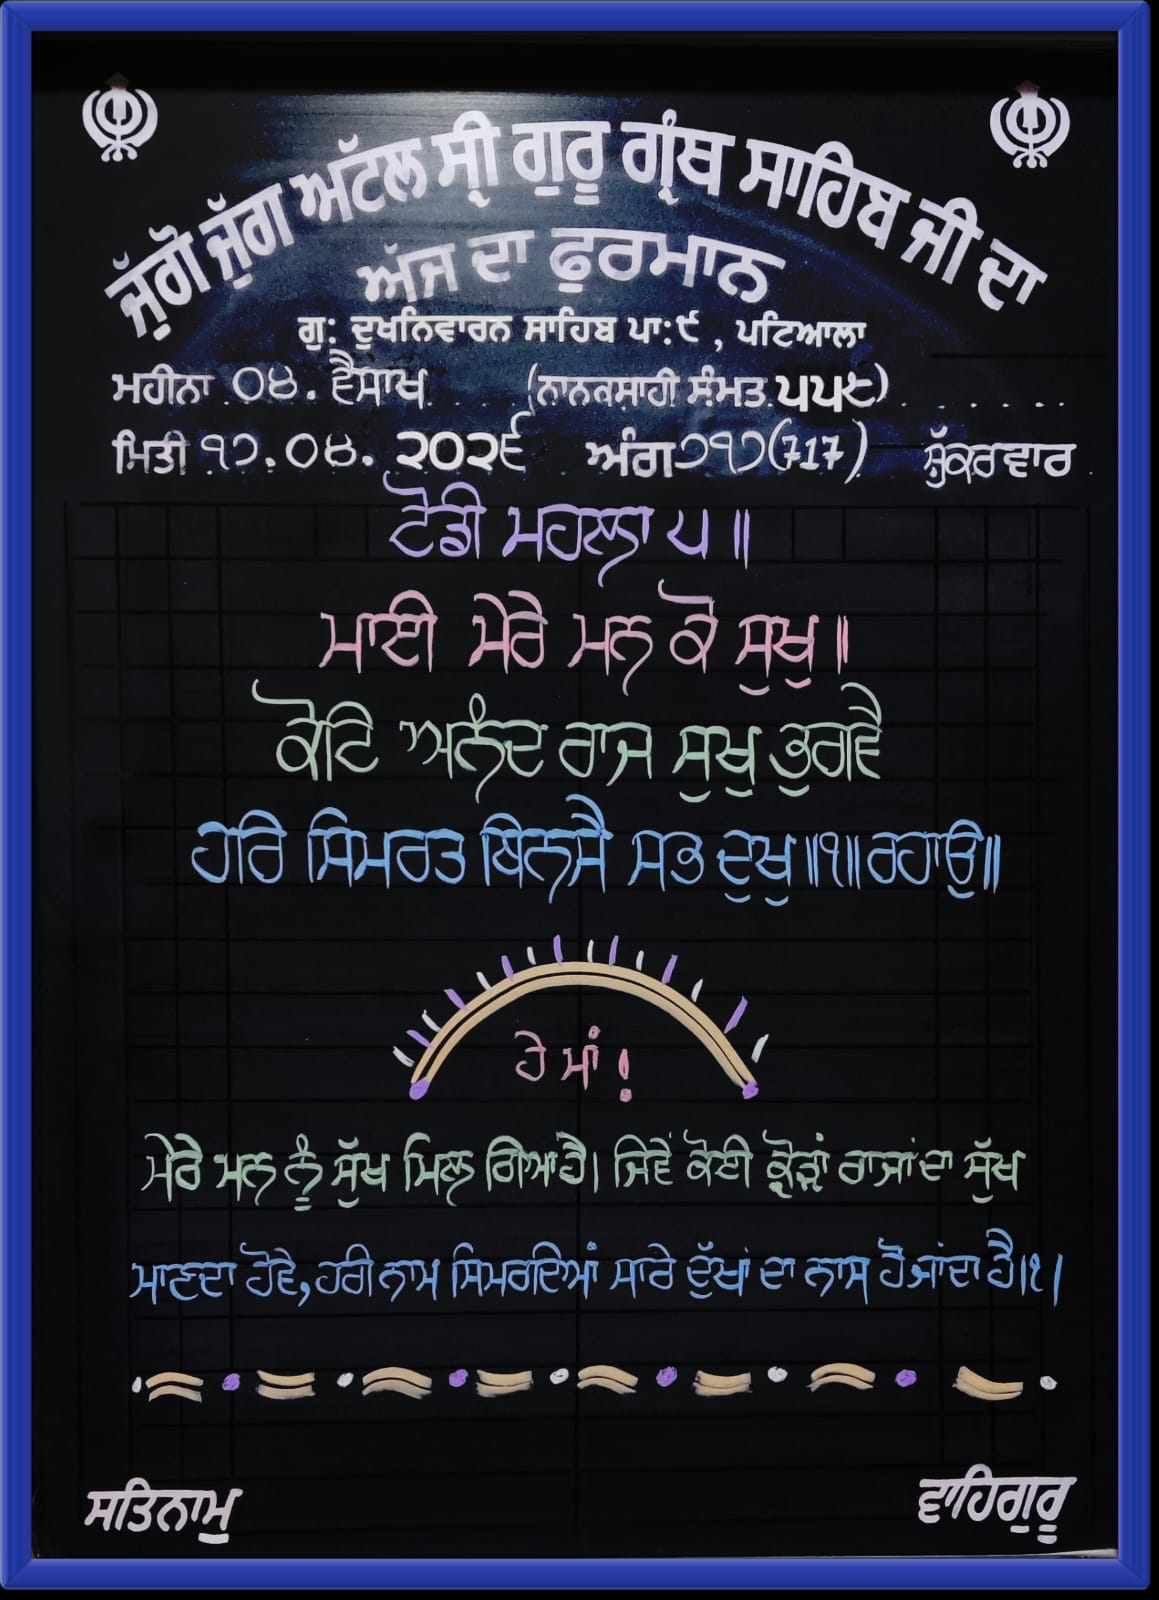 ਜੁੱਗੋ ਜੁੱਗ ਅਟੱਲ ਸ੍ਰੀ ਗੁਰੂ ਗ੍ਰੰਥ ਸਾਹਿਬ ਜੀ ਦਾ
ਅੱਜ ਦਾ ਫੁਰਮਾਨ
ਗੁ: ਦੁਖਨਿਵਾਰਨ ਸਾਹਿਬ ਪਾ:੯ , ਪਟਿਆਲਾ
ਮਹੀਨਾ ੦੪. ਵੈਸਾਖ (ਨਾਨਕਸ਼ਾਹੀ ਸੰਮਤ ੫੫੯)
ਮਿਤੀ ੧੭.੦੪. ੨੦੨੬ ਅੰਗ ੭੧੭(717) ਸ਼ੁੱਕਰਵਾਰ
ਟੋਡੀ ਮਹਲਾ ੫ ॥
ਮਾਈ ਮੇਰੇ ਮਨ ਕੋ ਸੁਖੁ ॥
ਕੋਟਿ ਅਨੰਦ ਰਾਜ ਸੁਖੁ ਭੁਗਵੈ
ਹਰਿ ਸਿਮਰਤ ਬਿਨਸੈ ਸਭ ਦੁਖੁ ॥੧॥ ਰਹਾਉ॥
ਹੇ ਮਾਂ !
ਮੇਰੇ ਮਨ ਨੂੰ ਸੁੱਖ ਮਿਲ ਗਿਆ ਹੈ। ਜਿਵੇਂ ਕੋਈ ਕ੍ਰੋੜਾਂ ਰਾਜਾਂ ਦਾ ਸੁੱਖ
ਮਾਣਦਾ ਹੋਵੇ, ਹਰੀ ਨਾਮ ਸਿਮਰਦਿਆਂ ਸਾਰੇ ਦੁੱਖਾਂ ਦਾ ਨਾਸ ਹੋ ਜਾਂਦਾ ਹੈ।੧।
ਸਤਿਨਾਮੁ ਵਾਹਿਗੁਰੂ